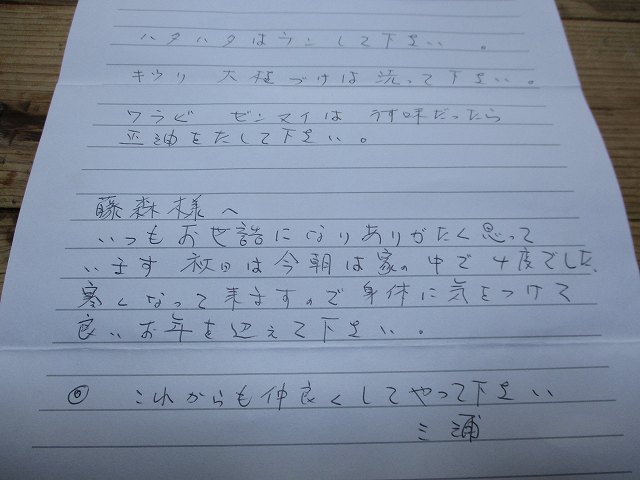 ハタハタはチンして下さい 。
キウリ 大根づけは洗って下さい。
ワラビ ゼンマイは うす味だったら
正油をたして下さい。
藤森様へ
いつもお世話になりありがたく思って
います 秋田は今朝は家の中で4度でした、
寒くなって来ますので身体に気をつけて
良いお年を迎えて下さい。
◎ これからも仲良くしてやって下さい
三浦